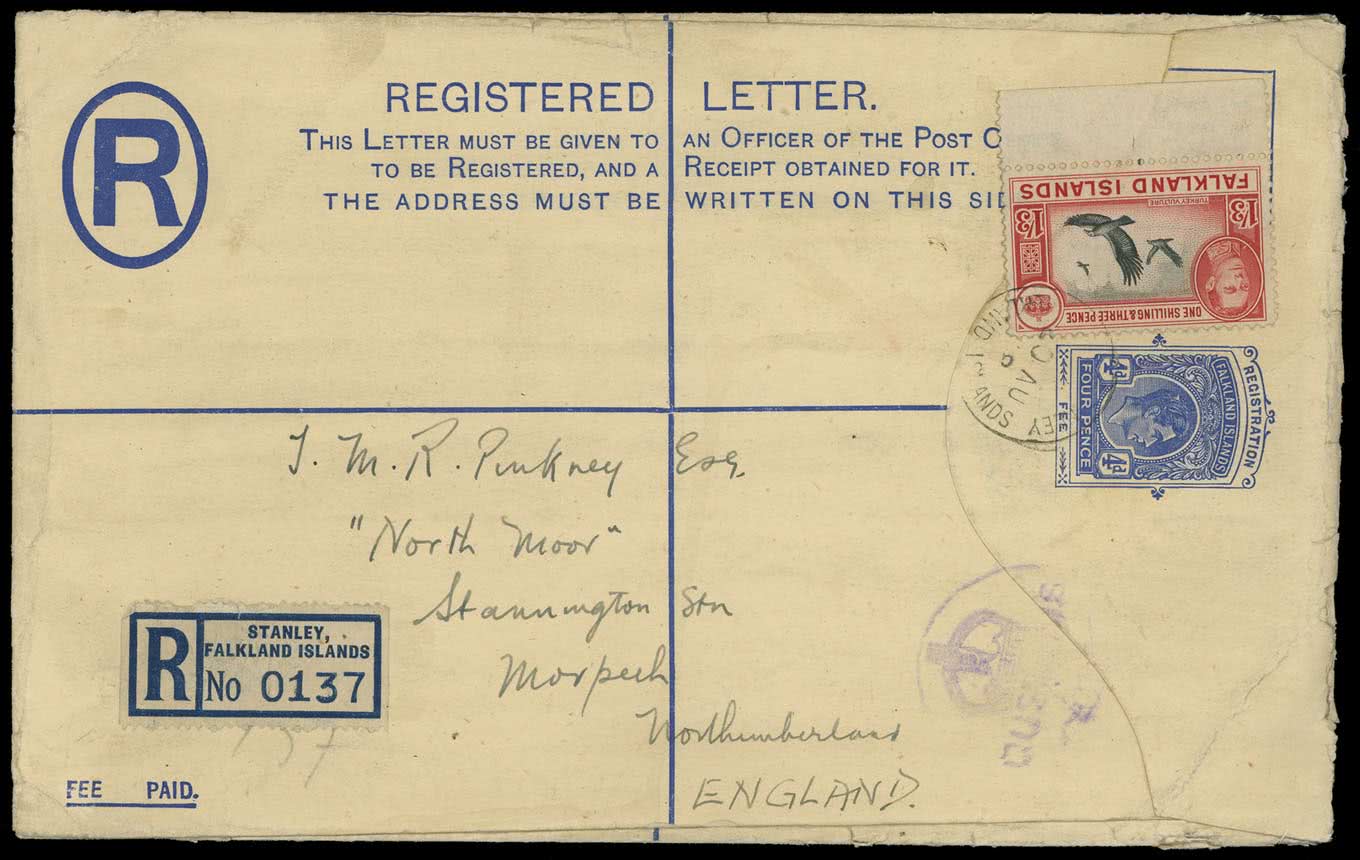 REGISTERED LETTER.
THIS LETTER MUST BE GIVEN TO AN OFFICER OF THE POST
TO BE REGISTERED, AND A RECEIPT OBTAINED FOR IT.
THE ADDRESS MUST BE WRITTEN ON THIS
R
FALKLAND ISLANDS
1/3 TURKEY VULTURE 1/3
ONE SHILLING & THREE PENCE
REGISTRATION
FALKLAND ISLANDS
4d 4d
FOUR PENCE
FEE
AU
J. M. R. Pinkney Esq.
"North Moor"
Stannington Stn
Morpeth
Northumberland
ENGLAND.
R
STANLEY,
FALKLAND ISLANDS
No 0137
FEE PAID.